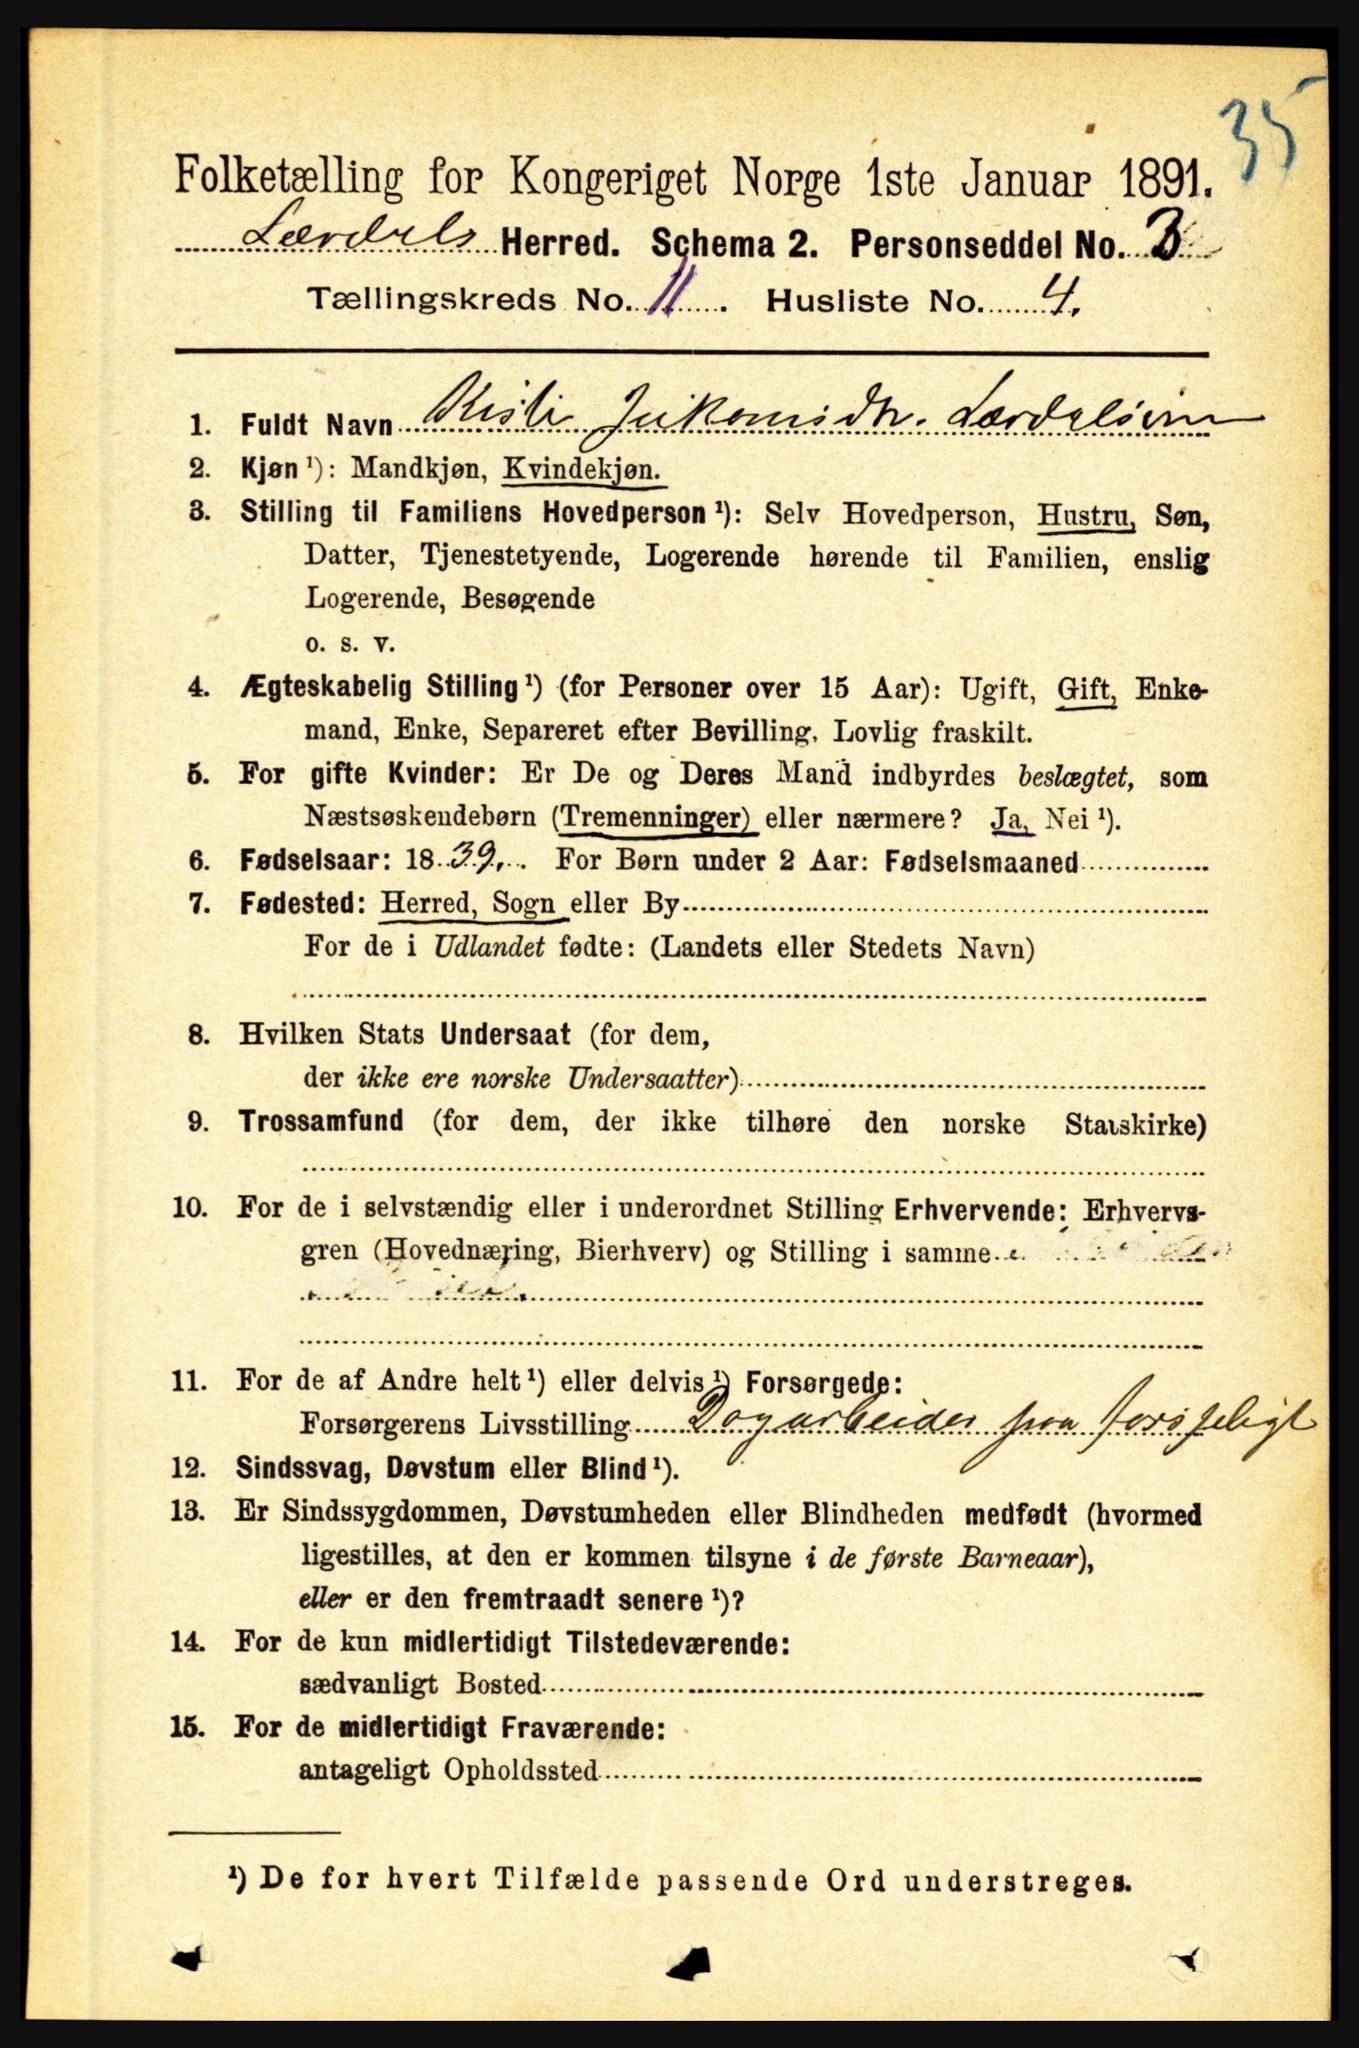 35
Folketælling for Kongeriget Norge 1ste Januar 1891.
Lærdals Herred. Schema 2. Personseddel No. 3
Tællingskreds No. 11. Husliste No. 4.
1. Fuldt Navn Kisti Lærdalsøren
2. Kjøn ¹): Mandkjøn, Kvindekjøn.
3. Stilling til Familiens Hovedperson ¹): Selv Hovedperson, Hustru, Søn,
Datter, Tjenestetyende, Logerende hørende til Familien, enslig
Logerende, Besøgende
o. s. v.
4. Ægteskabelig Stilling ¹) (for Personer over 15 Aar): Ugift, Gift, Enke-
mand, Enke, Separeret efter Bevilling, Lovlig fraskilt.
5. For gifte Kvinder: Er De og Deres Mand indbyrdes beslægtet, som
Næstsøskendebørn (Tremenninger) eller nærmere? Ja, Nei ¹).
6. Fødselsaar: 1839. For Børn under 2 Aar: Fødselsmaaned
7. Fødested: Herred, Sogn eller By
For de i Udlandet fødte: (Landets eller Stedets Navn)
8. Hvilken Stats Undersaat (for dem,
der ikke ere norske Undersaatter)
9. Trossamfund (for dem, der ikke tilhøre den norske Statskirke)
10. For de i selvstændig eller i underordnet Stilling Erhvervende: Erhvervs-
gren (Hovednæring, Bierhverv) og Stilling i samme
11. For de af Andre helt ¹) eller delvis ¹) Forsørgede:
Forsørgerens Livsstilling Dagarbeider paa forskjeligt
12. Sindssvag, Døvstum eller Blind ¹).
13. Er Sindssygdommen, Døvstumheden eller Blindheden medfødt (hvormed
ligestilles, at den er kommen tilsyne i de første Barneaar),
eller er den fremtraadt senere ¹)?
14. For de kun midlertidigt Tilstedeværende:
sædvanligt Bosted
15. For de midlertidigt Fraværende:
antageligt Opholdssted
¹) De for hvert Tilfælde passende Ord understreges.